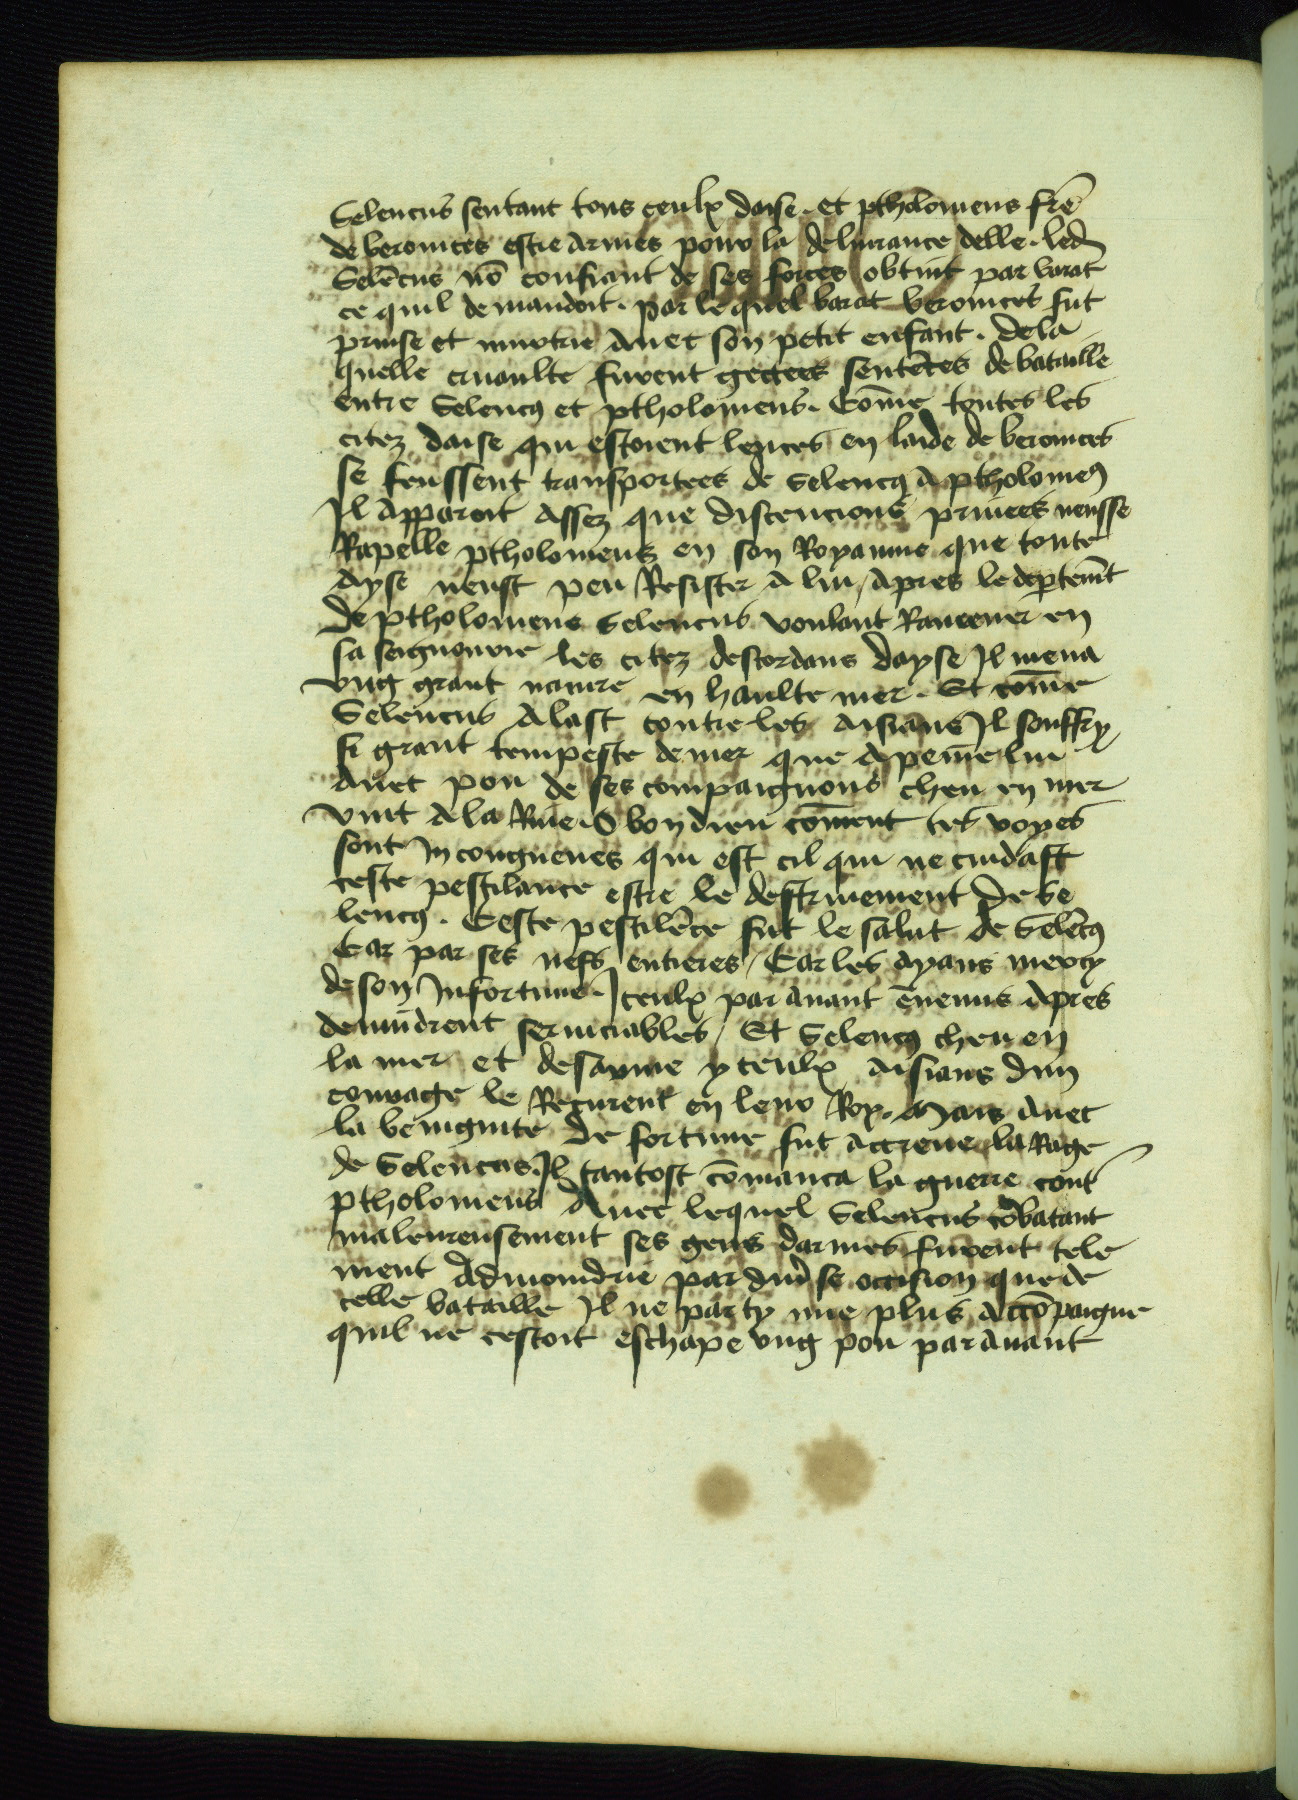 Seleucus sentant tous ceulx daise. et ptholomeus frē
de beronices estre armes pour la deliurance delle. led
Selēcus nō confiant de ses forces obtint par barat
ce quil demandoit. par lequel barat beronices fut
prinse et murtrie auec son petit enfant. de la
quelle cruaulte furent gectees sentēces de bataille
entre Seleucꝯ et ptholomeus. Cōme toutes les
citez daise qui estoient leuees en laide de beronices
se feussent transportees de Seleucꝯ a ptholomeꝯ
Il apparoit assez que discencions priuees neusse
Rapelle ptholomeus en son Royaume que toute
ayse neust peu Resister a lui / apres le deꝑtemēt
de ptholomeus Seleucus voulant Ramener en
sa seignourie les citez descordans dayse Il mena
vng grant nauire en haulte mer. Et cōme
Seleucus alast contre les aisians Il souffry
si grant tempeste de mer que a peine lui
auec pou de ses compaignons cheu en mer
vint a la Riue. O bon dieu cōment tes voyes
sont Incongneues qui est cil qui ne cuidast
ceste pestilance estre le destruiement de Se
leucꝯ. Ceste pestilēce fut le salut de Selēcꝯ
Car par ses nefs entieres / Car les ayans mercy
de son Infortune. Iceulx par auant ēnemis apres
deuindrent seruiciables / Et Seleucꝯ cheu en
la mer et desarme yceulx aisians dun
courage le Recurent en leur Roy. Mais auec
la benignite de fortune fut accreue la Rage
de Seleucus. Il tantost cōmanca la guerre cont
ptholomeus Auec lequel Seleucus cōbatant
maleureusement ses gens darmes furent tele
ment admoindrie par diuse occision que de
celle bataille Il ne party mie plus accōpaigne
quil ne cestoit eschape vng pou par auant